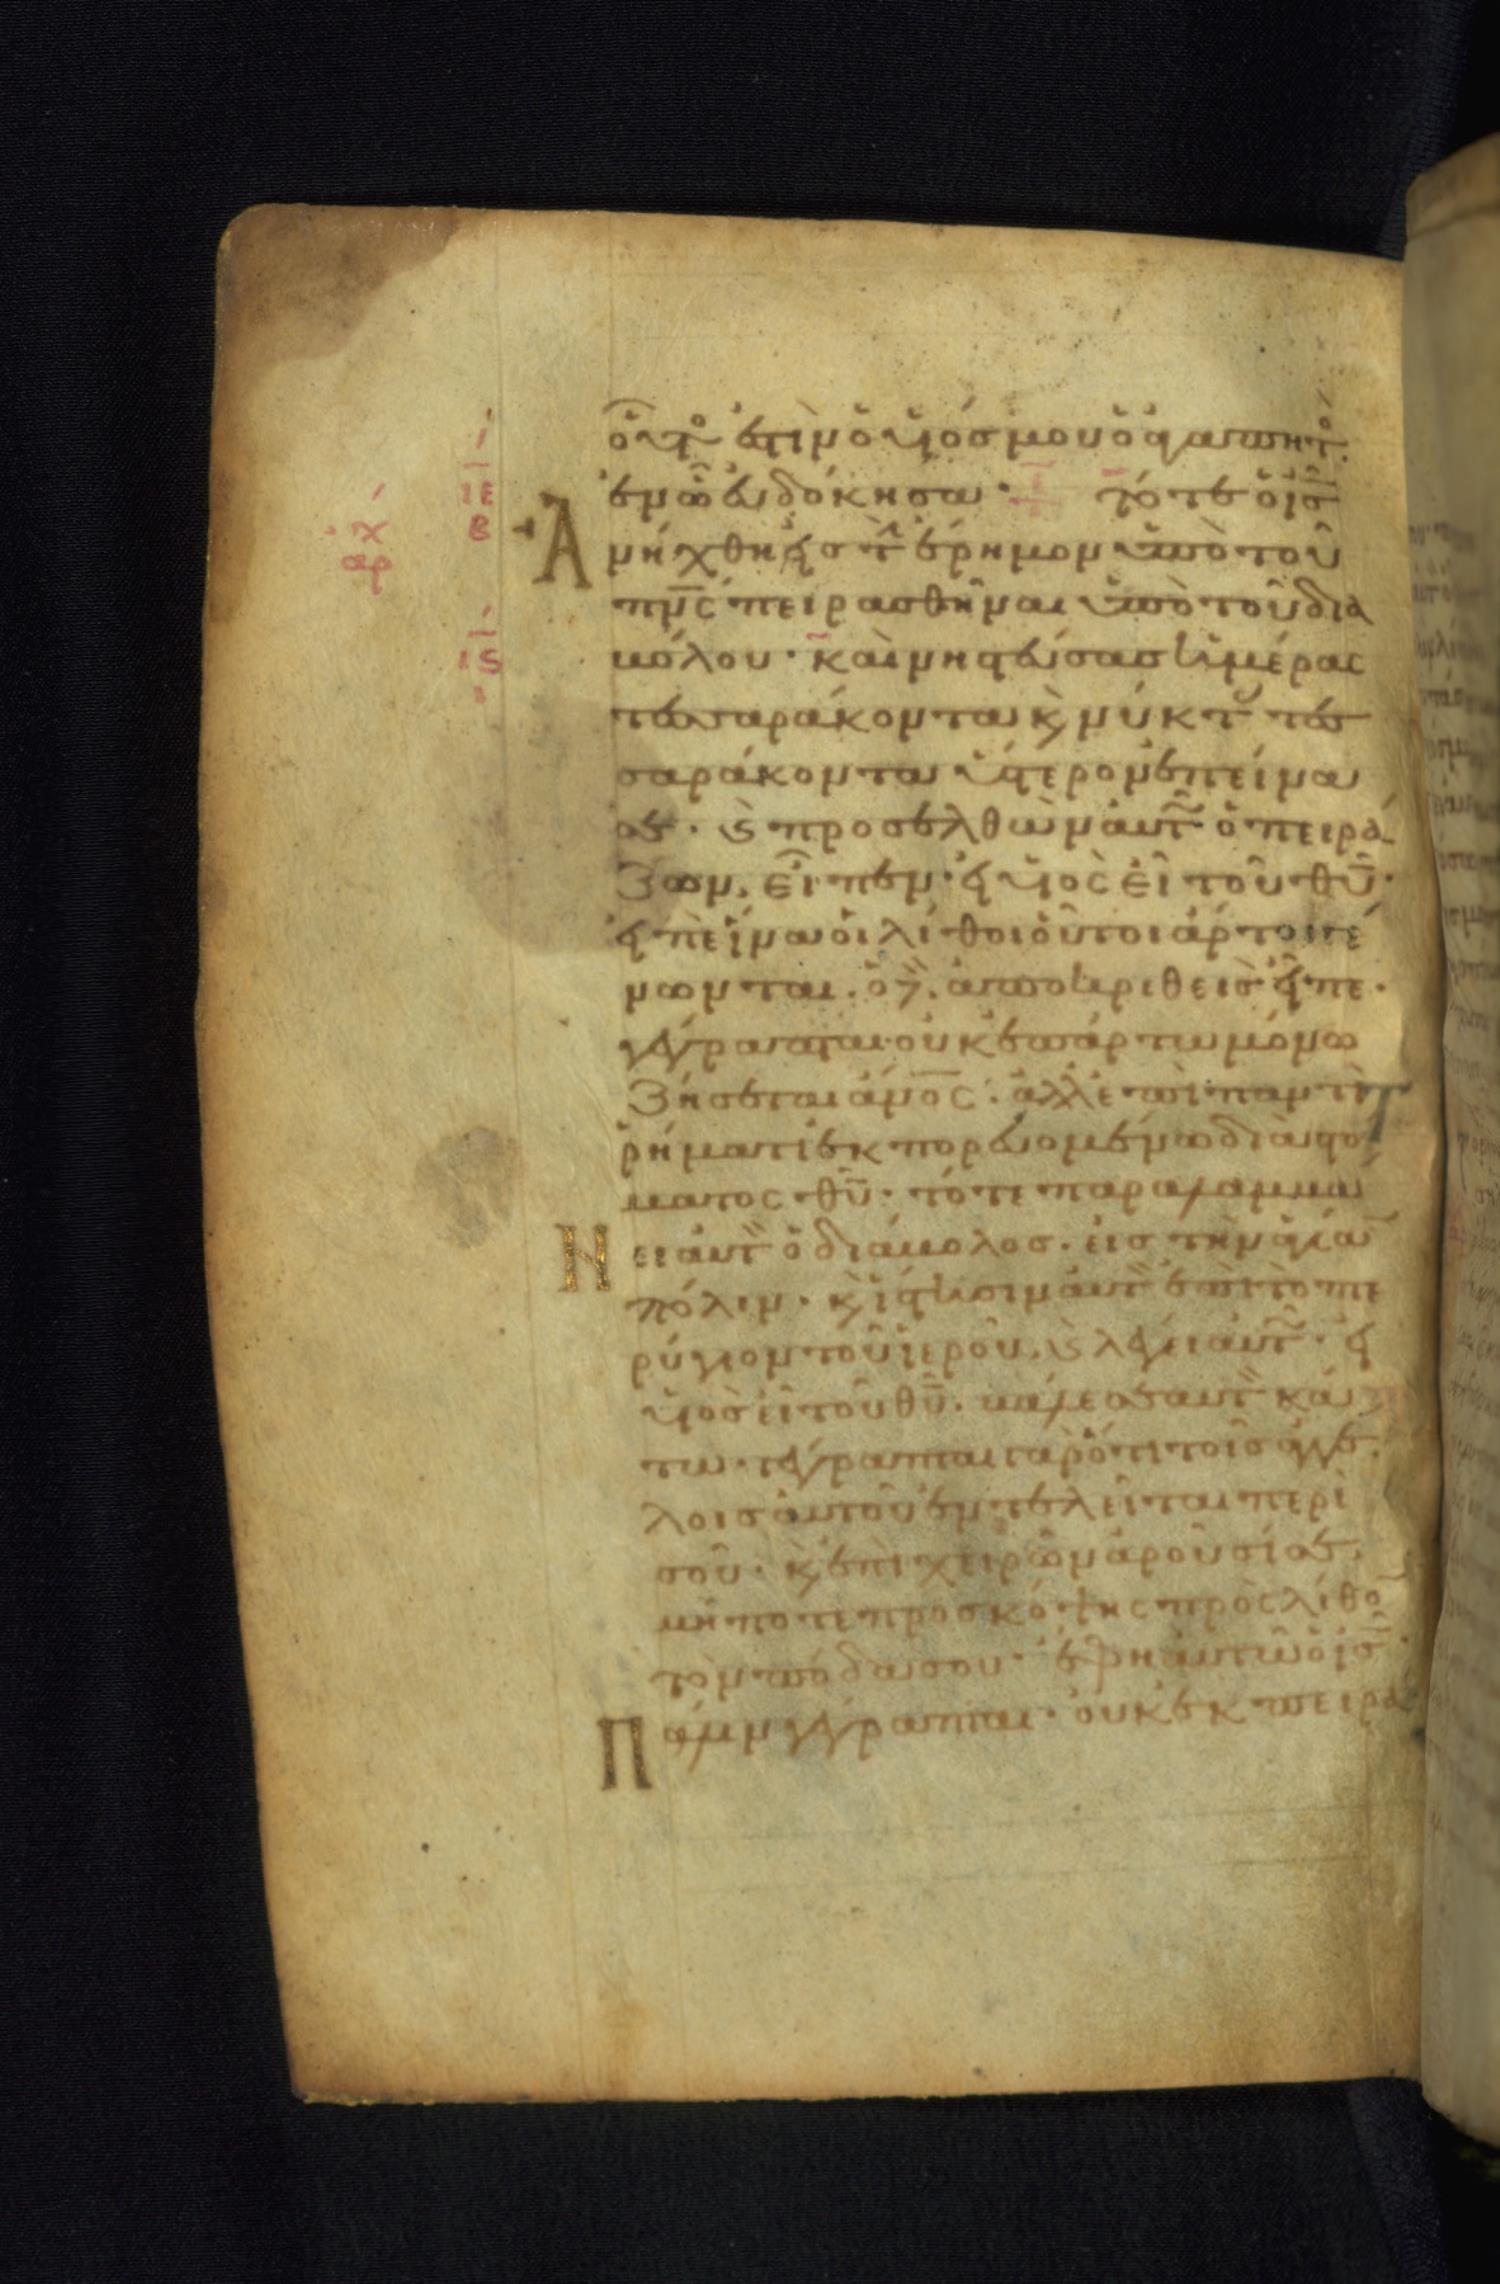 ὁὗτός ἐστιν ὁ ὑιός μου ὁ ἀγαπητὸ
ἐν ὧ ἐυδόκησα· τότε ὁ ις
Α νήχθη εἰς τὴν ἔρημον ὑπὸ τοῦ
πνς πειρασθῆναι ὑπὸ τοῦ δια
βόλου· καὶ νηστεύσας ἡμέρας
τεσσαράκοντα κ νύκτ τεσ
σαράκοντα ὕστερον ἐπείνα
σε· κ προσελθὼν αὐτῶ ὁ πειρά
ζων. εἶπεν· εἰ ὑιὸς εἶ τοῦ θυ·
εἰπὲ ἵνα οἱ λίθοι οὗτοι ἄρτοι γέ
νωνται. ὁ δὲ ἀποκριθεὶς εἶπε·
γέγραπται οὐκ ἐπ ἄρτω μόνω
ζήσεται ἀνος· ἀλλ ἐπὶ παντὶ
ῥήματι ἐκπορευομένω διὰ στό
ματος θυ· τότε παραλαμβά
Ν ει αὐτὸν ὁ διάβολος· εἰς τὴν ἁγίαν
πόλιν· κ ἵστησιν αὐτὸν ἐπὶ τὸ πτε
ρύγιον τοῦ ἱεροῦ. κ λέγει αὐτῶ· εἰ
ὑιὸς εἶ τοῦ θυ· βάλε σεαυτὸν κά
τω· γέγραπται γὰρ ὅτι τοῖς ἀγγέ
λοις αὐτοῦ ἐντελεῖται περὶ
σοῦ· κ ἐπὶ χειρῶν ἀροῦσί σε.
μήποτε προσκόψης πρὸς λίθον
τὸν πόδα σου· ἔφη αὐτῶ ὁ ις·
Π άλιν γέγραπται· οὐκ ἐκπειρά